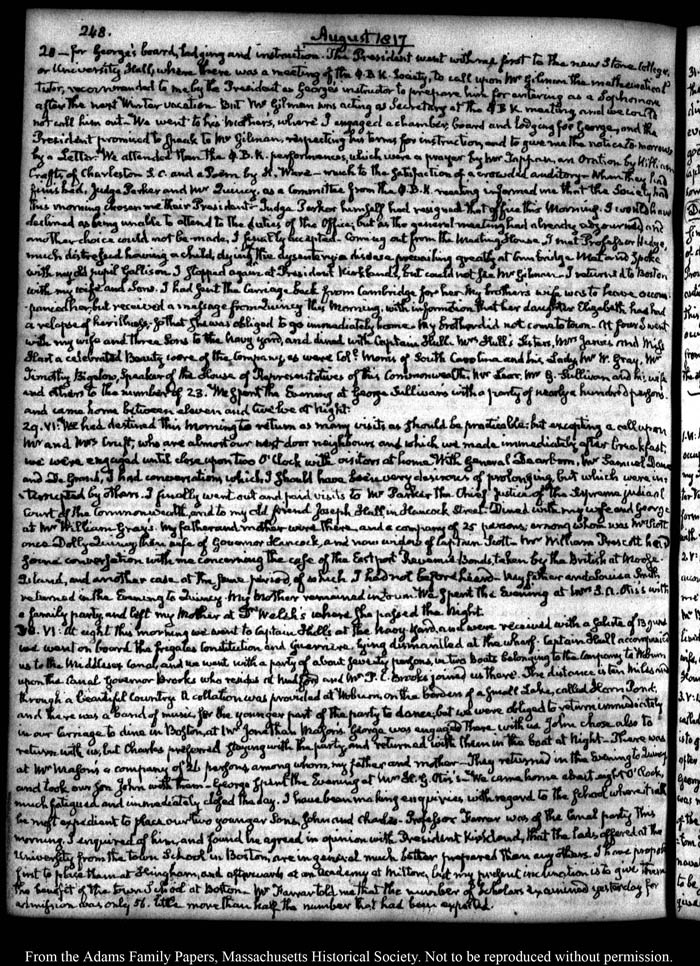 248.
August 1817
28 — for George's board, lodging and instruction. The President went with me first to the new Stone College,
or University Hall, where there was a meeting of the Φ.B.K. Society, to call upon Mr Gilman the mathematical
tutor, recommended to me by the President as George's instructor to prepare him for entering as a Sophomore
after the next Winter vacation. But Mr Gilman was acting as Secretary at the Φ.B.K. meeting and we could
not call him out. We went to his Mother's, where I engaged a chamber, board and lodging for George, and the
President promised to speak to Mr Gilman, respecting his terms for instruction, and to give me the notice to-morrow
by a Letter. We attended then the Φ.B.K. performances, which were a prayer by Mr Tappan, an Oration by William
Crafts of Charleston S.C. and a Poem by H. Ware — much to the satisfaction of a crowded auditory — When they had
finished, Judge Parker and Mr Quincy, as a Committee from the Φ.B.K. meeting informed me that the Society, had
this morning chosen me their President — Judge Parker himself had resigned that office this Morning. I would have
declined as being unable to attend to the duties of the Office, but as the general meeting had already adjourned and
another choice could not be made, I finally accepted. Coming out from the Meeting House, I met Professor Hedge,
much distressed having a child, dying of the dysentery, a disease prevailing greatly at Cambridge. Met and spoke
with my old pupil Gallison. I stopped again at President Kirkland's, but could not see Mr Gilman — I returned to Boston
with my wife and Sons. I had sent the Carriage back from Cambridge for her. My brother's wife was to have accom-
panied her, but received a message from Quincy this Morning, with information that her daughter Elizabeth, has had
a relapse of her illness, so that she was obliged to go immediately home. My brother did not come to town. At four I went
with my wife and three Sons to the Navy yard, and dined with Captain Hull. Mrs Hull's Sisters, Mrs Jarvis and Miss
Hart a celebrated Beauty were of the Company, as were Coll. Morris of South Carolina and his Lady, Mr W. Gray, Mr
Timothy Bigelow, Speaker of the House of Representatives of this Commonwealth, Mr Lear, Mr G. Sullivan and his wife
and others to the number of 23. We spent the Evening at George Sullivan's with a party of nearly a hundred persons
and came home between eleven and twelve at Night.
29. VI. We had destined this Morning to return as many visits as should be practicable: but excepting a call upon
Mr and Mrs Cruft, who are almost our next door neighbours and which we made immediately after breakfast,
we were engaged until close upon two O'Clock with visitors at home. With General Dearborn, Mr Samuel
and De Grand, I had conversations, which I should have been very desirous of prolonging, but which were in-
terrupted by others. I finally went out and paid visits to Mr Parker the Chief Justice of the Supreme judicial
Court of the Commonwealth, and to my old friend Joseph Hall in Hancock Street. Dined with my wife and George
at Mr William Gray's. My father and mother were there, and a company of 25 persons; among whom was Mrs Scott
once Dolly Quincy, then wife of Governor Hancock, and now widow of Captain Scott — Mr William Prescott had
some conversation with me concerning the case of the Eastport Revenue Bonds, taken by the British at Moose
Island, and another case at the same period, of which I had not before heard — My father and Louisa Smith,
returned in the Evening to Quincy. My Mother remained in town. We spent the Evening at Mrs S. A. Otis's with
a family party and left my Mother at Dr Welsh's where she passed the Night.
30. VI. At eight this morning we went to Captain Hull's at the Navy Yard, and were received with a Salute of 13 guns
we went on board the frigates Constitution and Guerriere, lying dismantled at the wharf. Captain Hull accompanied
us to the Middlesex Canal, and we went with a party of about seventy persons, in two Boats belonging to the Company to Woburn
upon the Canal. Governor Brooks who resides at Medford and Mr P. C. Brooks joined us there. The distance is ten Miles and
through a beautiful Country. A collation was provided at Woburn, on the borders of a small Lake, called Horn Pond,
and there was a band of music, for the younger part of the party to dance, but we were obliged to return immediately
in our Carriage to dine in Boston, at Mr Jonathan Mason's. George was engaged there with us. John chose also to
return with us, but Charles preferred staying with the party, and returned with them in the boat at Night — There was
at Mr Mason's a company of 24 persons among whom, my father and mother — They returned in the Evening to Quincy
and took our Son John with them — George spent the Evening at Mr H. G. Otis's — We came home about eight O'Clock,
much fatigued and immediately closed the day. I have been making enquiries with regard to the School where it will
be most expedient to place our two younger Sons, John and Charles — Professor Farrar was of the Canal party this
morning. I enquired of him, and found he agreed in opinion with President Kirkland, that the lads offered at the
University from the town School in Boston, are in general much better prepared than any others. I have proposed
first to place them at Hingham, and afterwards at an Academy at Milton, but my present inclination is to give them
the benefit of the town School at Boston. Mr Farrar told me that the number of Scholars examined yesterday for
admission was only 56. little more than half the number that had been expected.
From the Adams Family Papers, Massachusetts Historical Society. Not to be reproduced without permission.